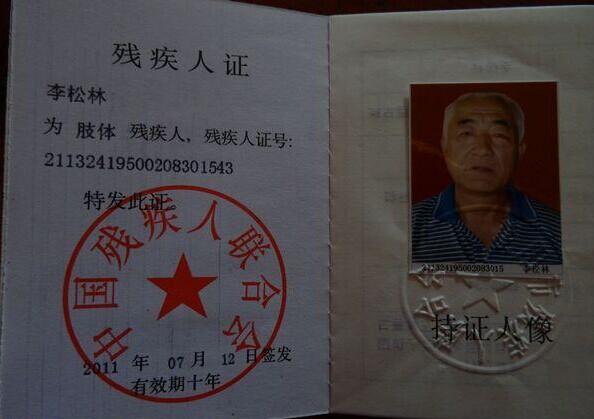 残疾人证
李松林
为 肢体 残疾人，残疾人证号:
21132419500208301543
特发此证。
中国残疾人联合会
2011 年 07 月 12 日签发
有效期十年
211324195002083015 李松林
持证人像